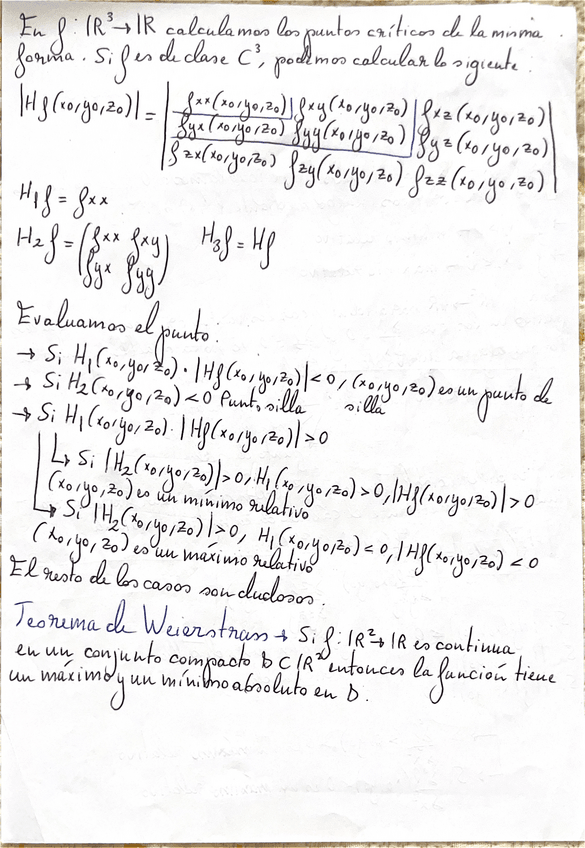 En f: ℝ³→ℝ calculamos los puntos críticos de la misma
forma. Si f es de clase C³, podemos calcular lo sigiente:
|Hf(x0,y0,z0)| = | fxx(x0,y0,z0) fxy(x0,y0,z0) fxz(x0,y0,z0) |
fyx(x0,y0,z0) fyy(x0,y0,z0) fyz(x0,y0,z0)
fzx(x0,y0,z0) fzy(x0,y0,z0) fzz(x0,y0,z0)
H1f = fxx
H2f = (fxx fxy H3f = Hf
fyx fyy)
Evaluamos el punto:
→ Si H1(x0,y0,z0)·|Hf(x0,y0,z0)|<0, (x0,y0,z0) es un punto de
silla
→ Si H2(x0,y0,z0)<0 Punto silla
→ Si H1(x0,y0,z0)·|Hf(x0,y0,z0)|>0
↳ Si |H2(x0,y0,z0)|>0, H1(x0,y0,z0)>0, |Hf(x0,y0,z0)|>0
(x0,y0,z0) es un mínimo relativo
↳ Si |H2(x0,y0,z0)|>0, H1(x0,y0,z0)<0, |Hf(x0,y0,z0)<0
(x0,y0,z0) es un máximo relativo
El resto de los casos son dudosos.
Teorema de Weierstrass → Si f: ℝ²→ℝ es continua
en un conjunto compacto D⊂ℝ² entonces la función tiene
un máximo y un mínimo absoluto en D.